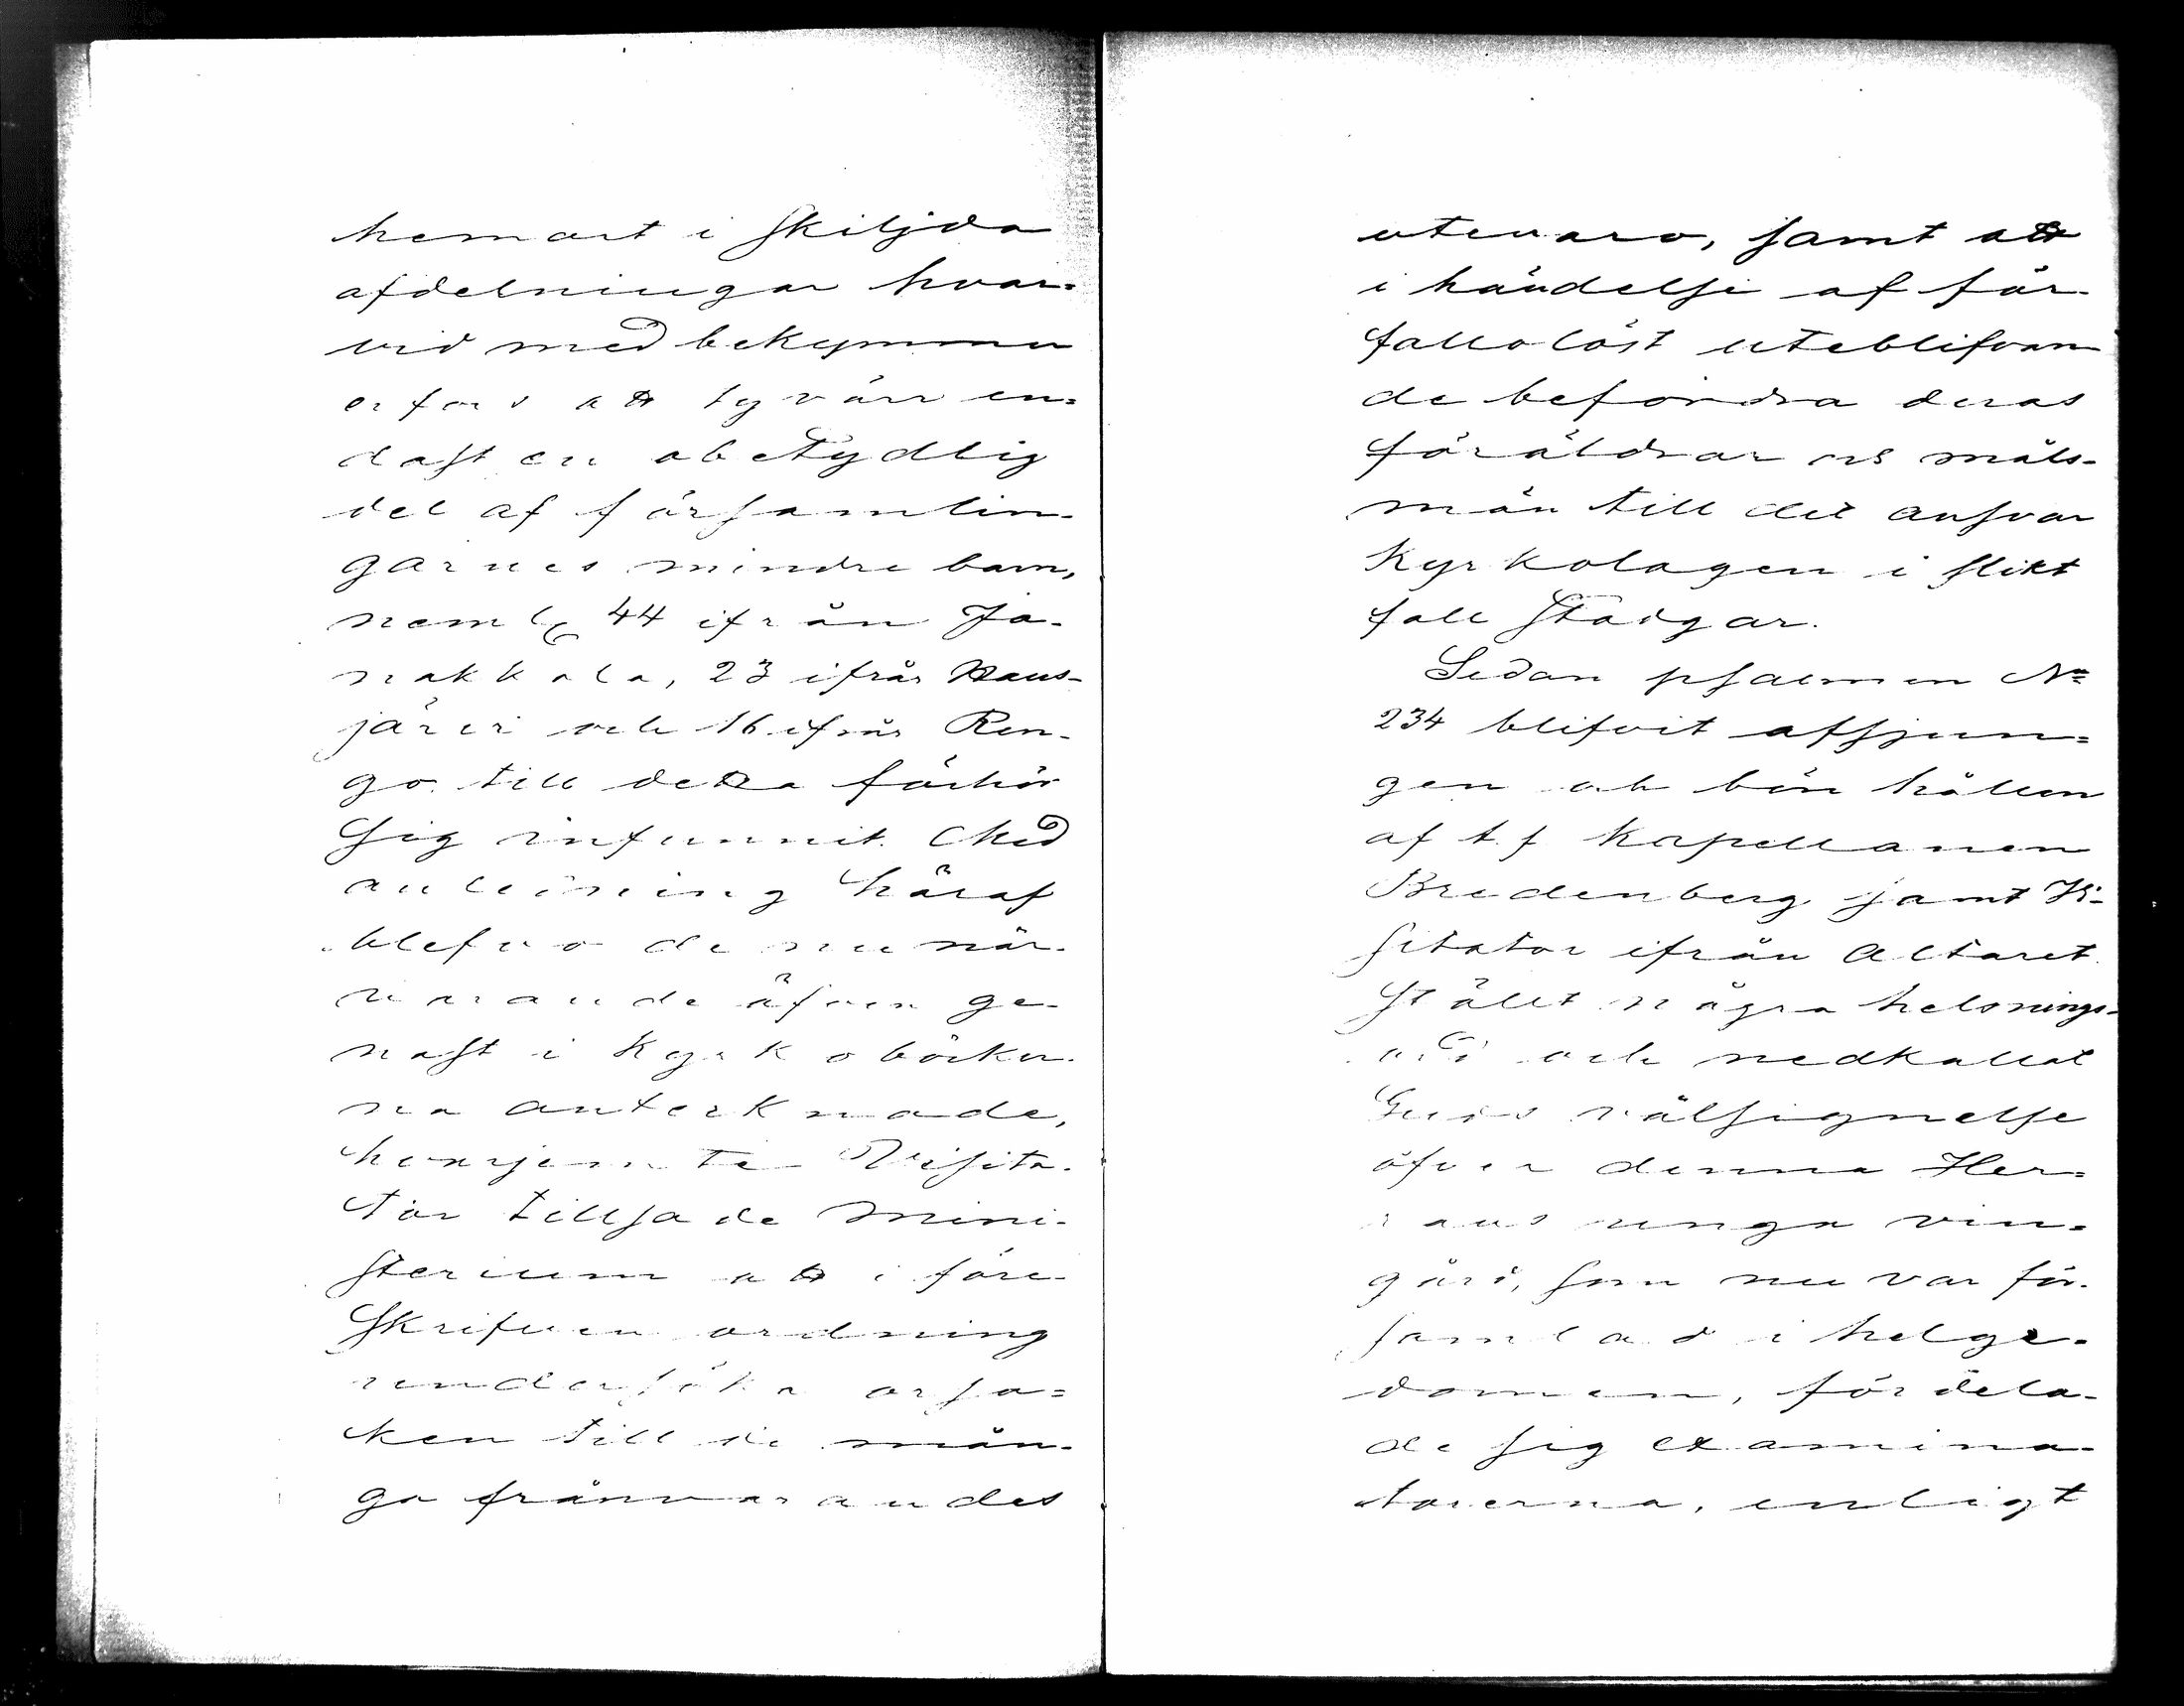 hemort i skiljda
afdelningar hvar=
vid med bekymmer
erfors att tyvärr en=
dast en obetydlig
del af församlin-
garnes mindre barn,
neml. 44 ifrån Ja-
nakkala, 23 ifrån Haus-
järvi och 16 ifrån Ren-
go till detta förhör
sig infunnit. Med
anledning häraf
blefvo de nu när-
varande äfven ge-
nast i kyrkoböcker-
na antecknade,
hvarjemte Visita-
tor tillsade Mini-
sterium att i före-
skrifven ordning
undersöka orsa=
ken till de mån-
ga frånvarandes
utevaro, samt att
i händelse af för-
fallolöst uteblifvan
de befordra deras
föräldrar och måls-
män till det ansvar
Kyrkolagen i slikt
fall stadgar.
Sedan psalmen No
234 blifvit afsjun=
gen och bön hållen
af t.f. kapellanen
Bredenberg samt Vi-
sitator ifrån altaret
ställt några helsnings-
ord och nedkallat
Guds välsignelse
öfver denna Her=
rans unga vin-
gård, som nu var för-
samlad i helge-
domen, fördela-
de sig examina-
torerna, enligt